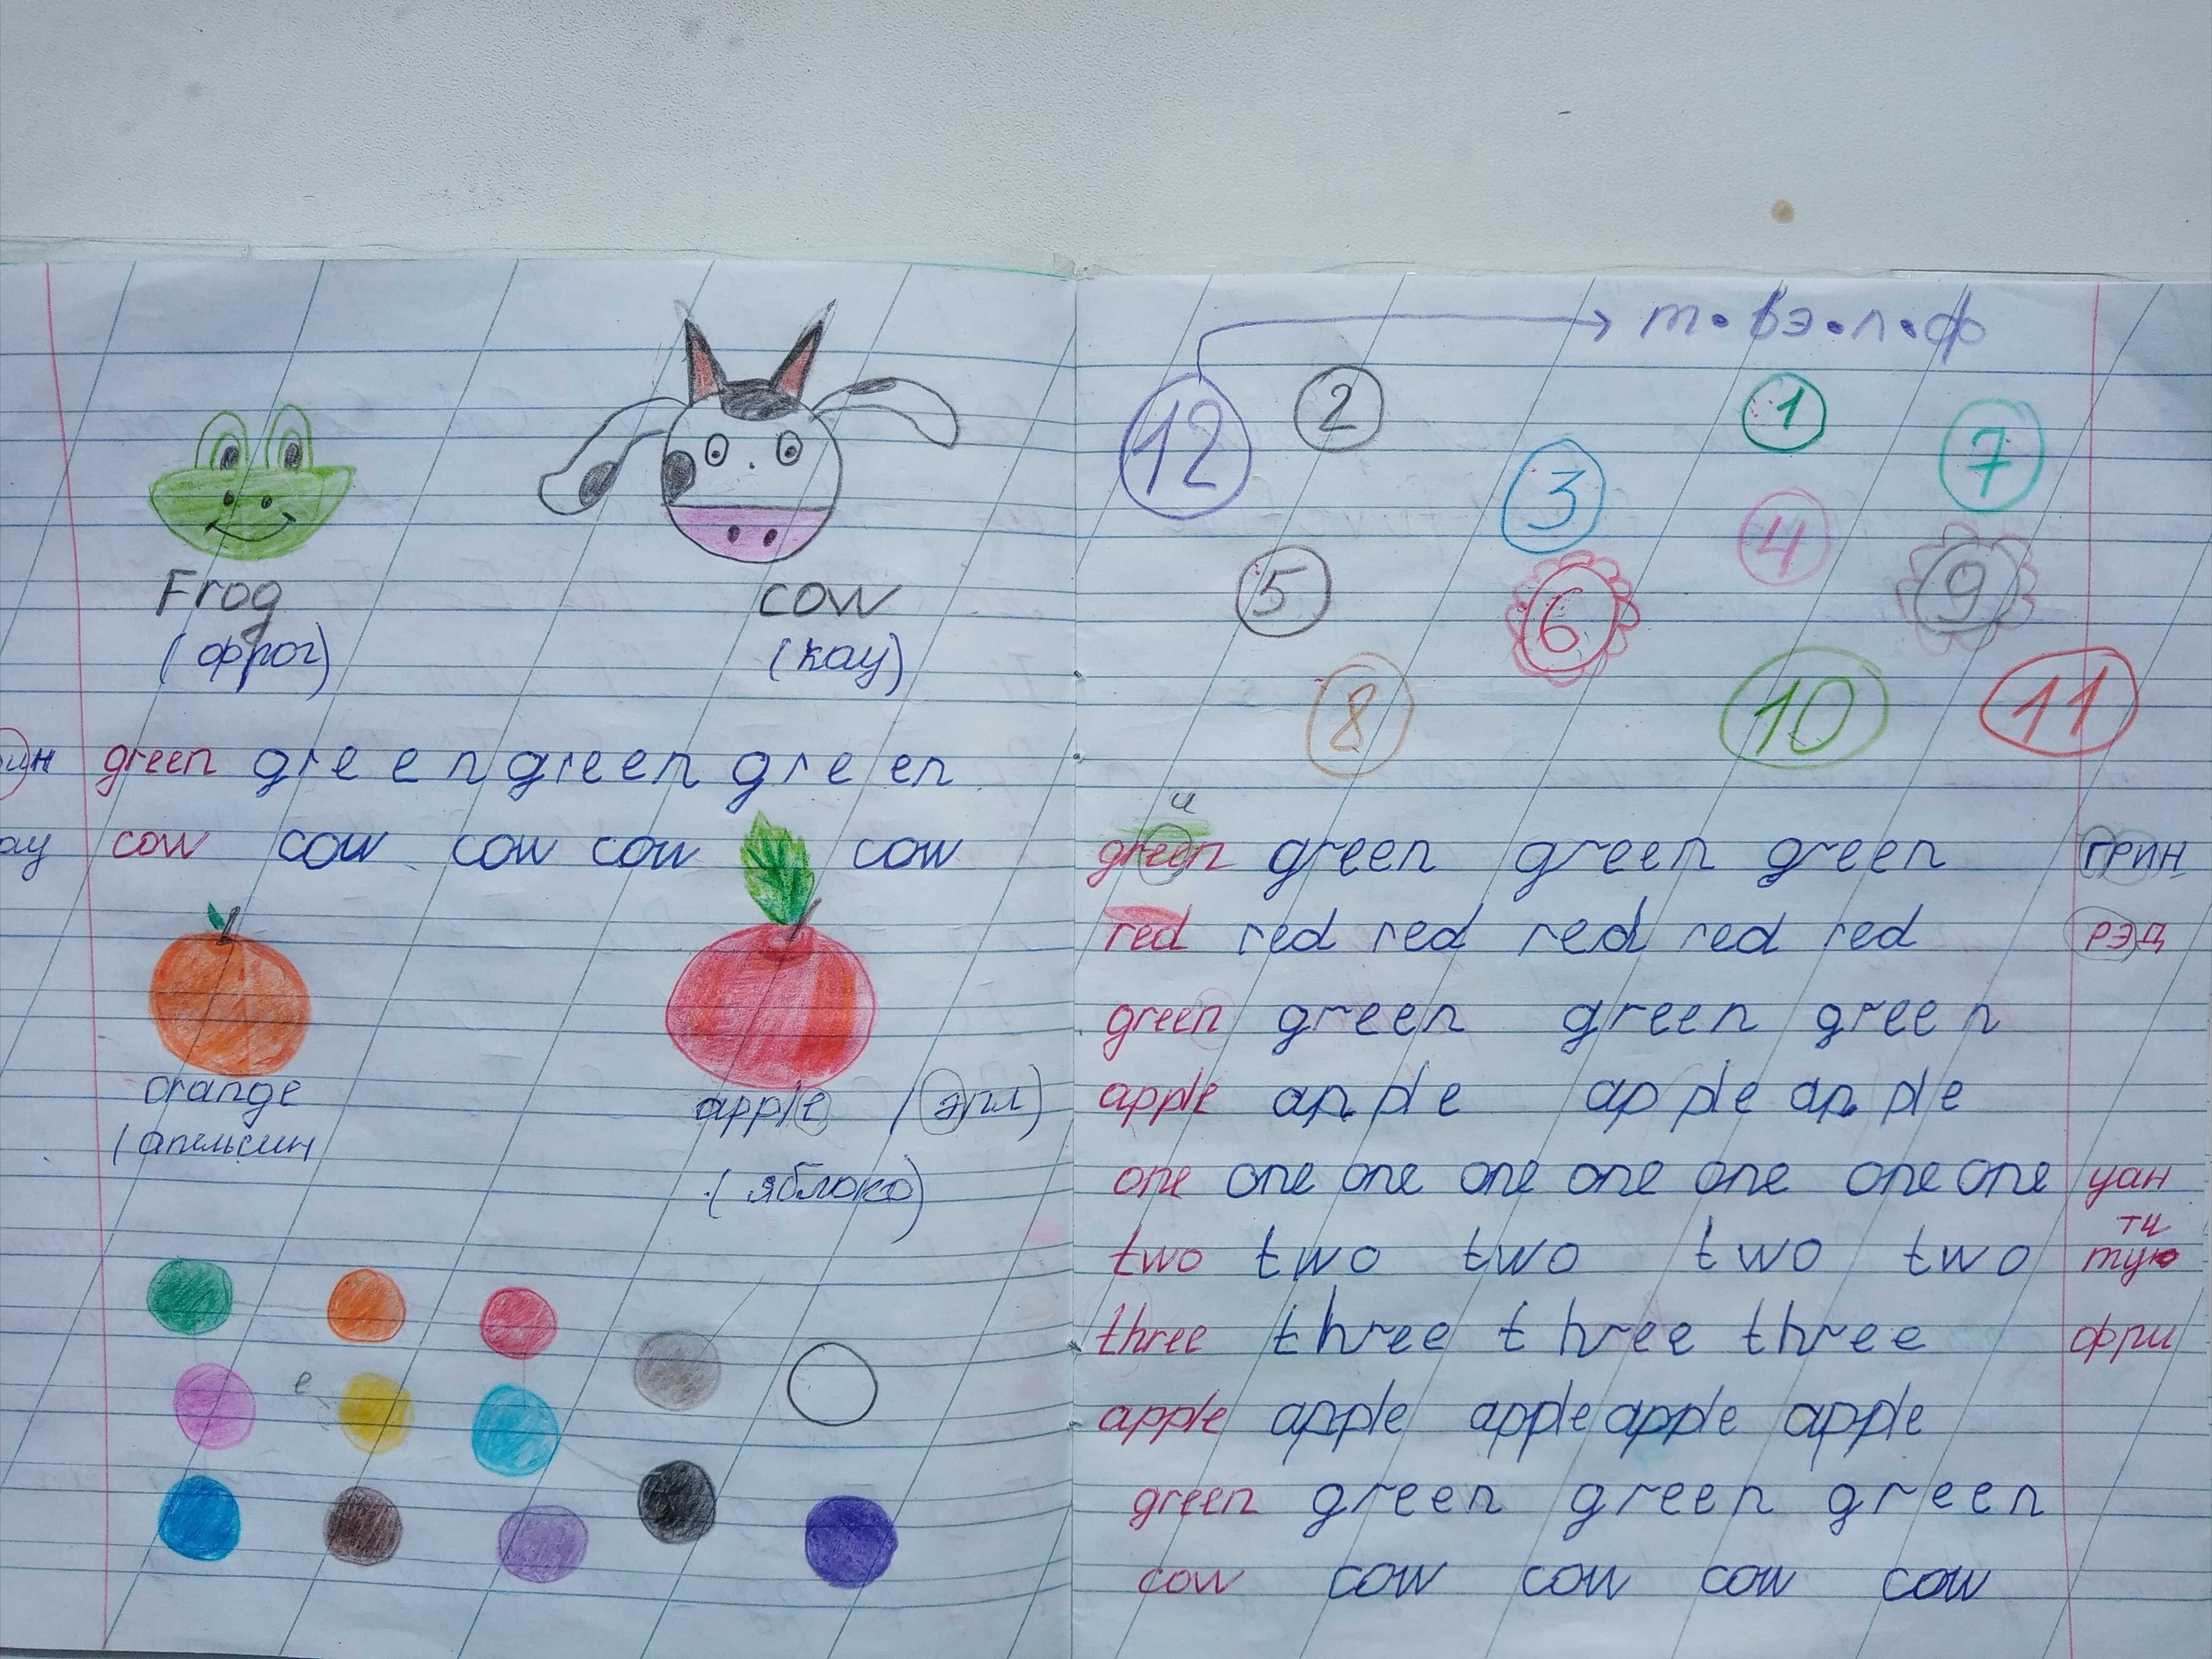 Frog cow
(фрог) (кау)
ин green green green green
ау cow cow cow cow cow
orange apple (эпл)
(апельсин (яблоко)
е
т•вэ•л•ф
12 2 1 7
3 4
5 6 9
8 10 11
и
green green green green грин
red red red red red red рэд
green green green green
apple apple apple apple
one one one one one one one one уан
ти
two two two two two тую
three three three three фри
apple apple apple apple apple
green green green green
cow cow cow cow cow